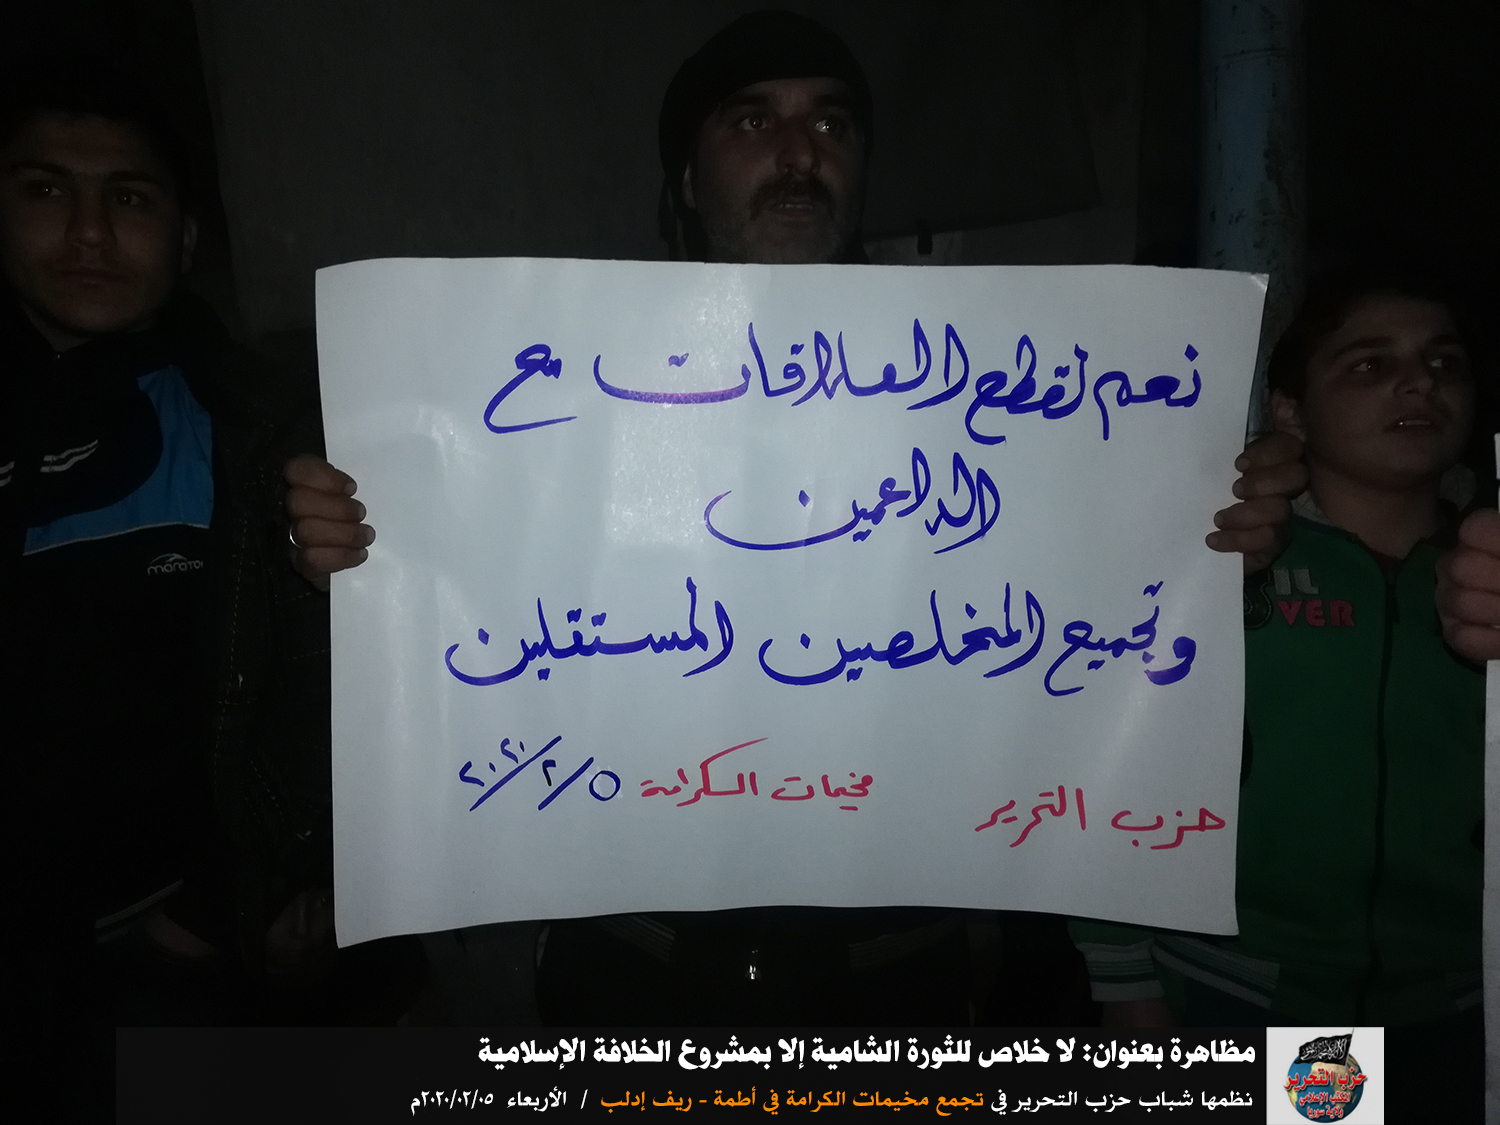 نعم لقطع العلاقات مع
الداعمين
وتجميع المخلصين المستقلين
حزب التحرير مخيمات الكرامة ٥/٢/٢٠٢٠
maraton
SIL
VER
مظاهرة بعنوان: لا خلاص للثورة الشامية إلا بمشروع الخلافة الإسلامية
نظمها شباب حزب التحرير في تجمع مخيمات الكرامة في أطمة - ريف إدلب / الأربعاء ٢٠٢٠/٠٢/٠٥م
حزب التحرير
المكتب الإعلامي
ولاية سوريا